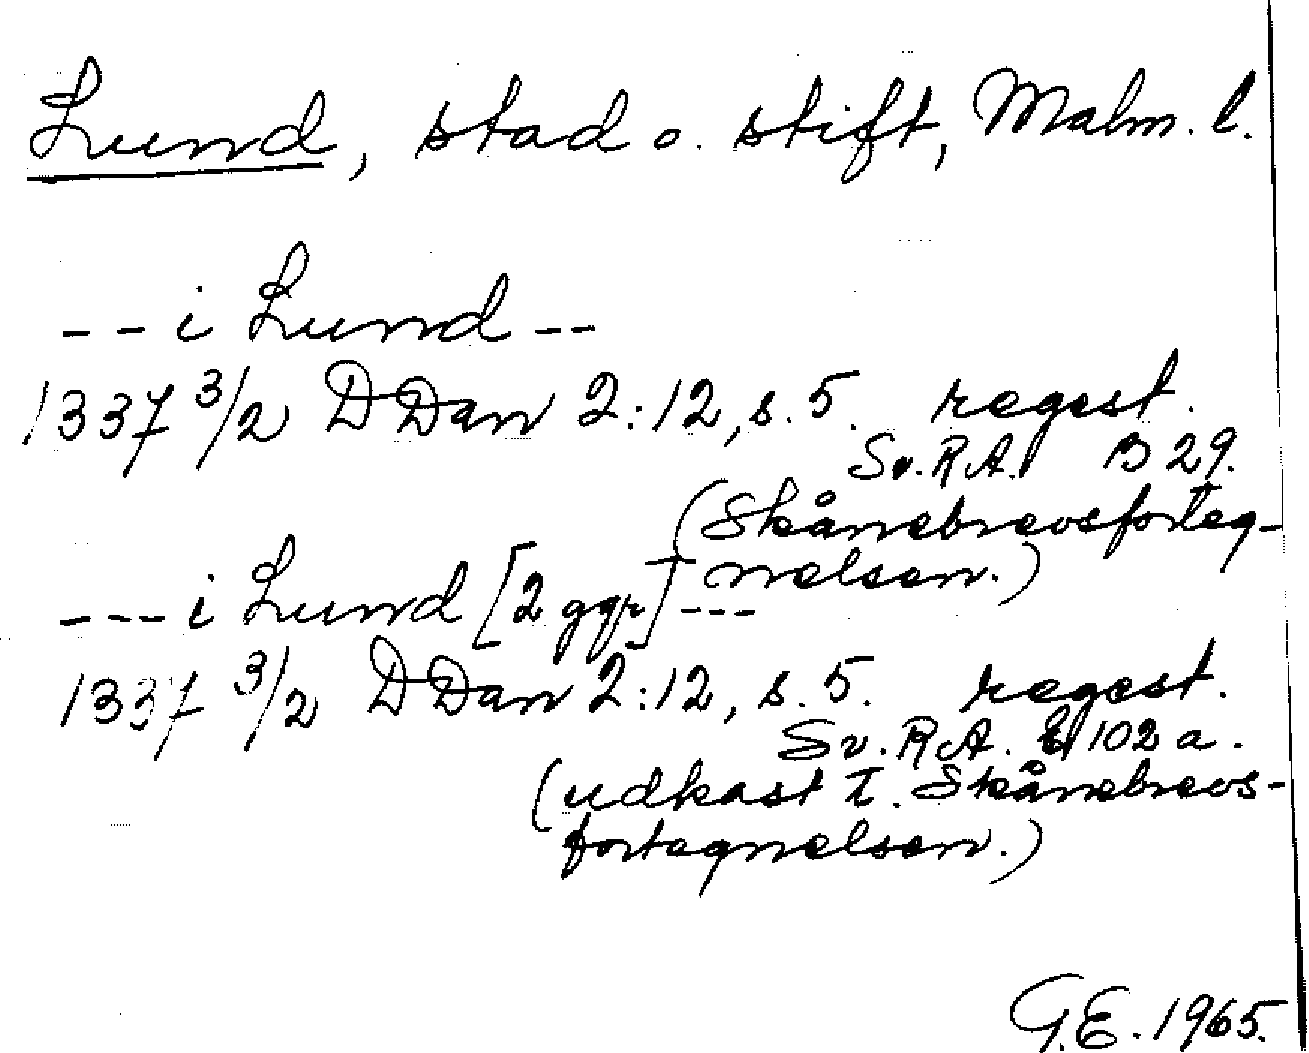 Lund, stad o. stift, Malm. l.
-- i Lund --
1337 3/2 DDan 2:12, s. 5. regest.
Sv. R.A. B 29.
(Skånebrevsforteg-
nelsen.)
--- i Lund [2 ggr] ---
1337 3/2 DDan 2:12, s. 5. regest.
Sv. R.A. E 102 a.
(udkast t. Skånebrevs-
fortegnelsen.)
G.E. 1965.